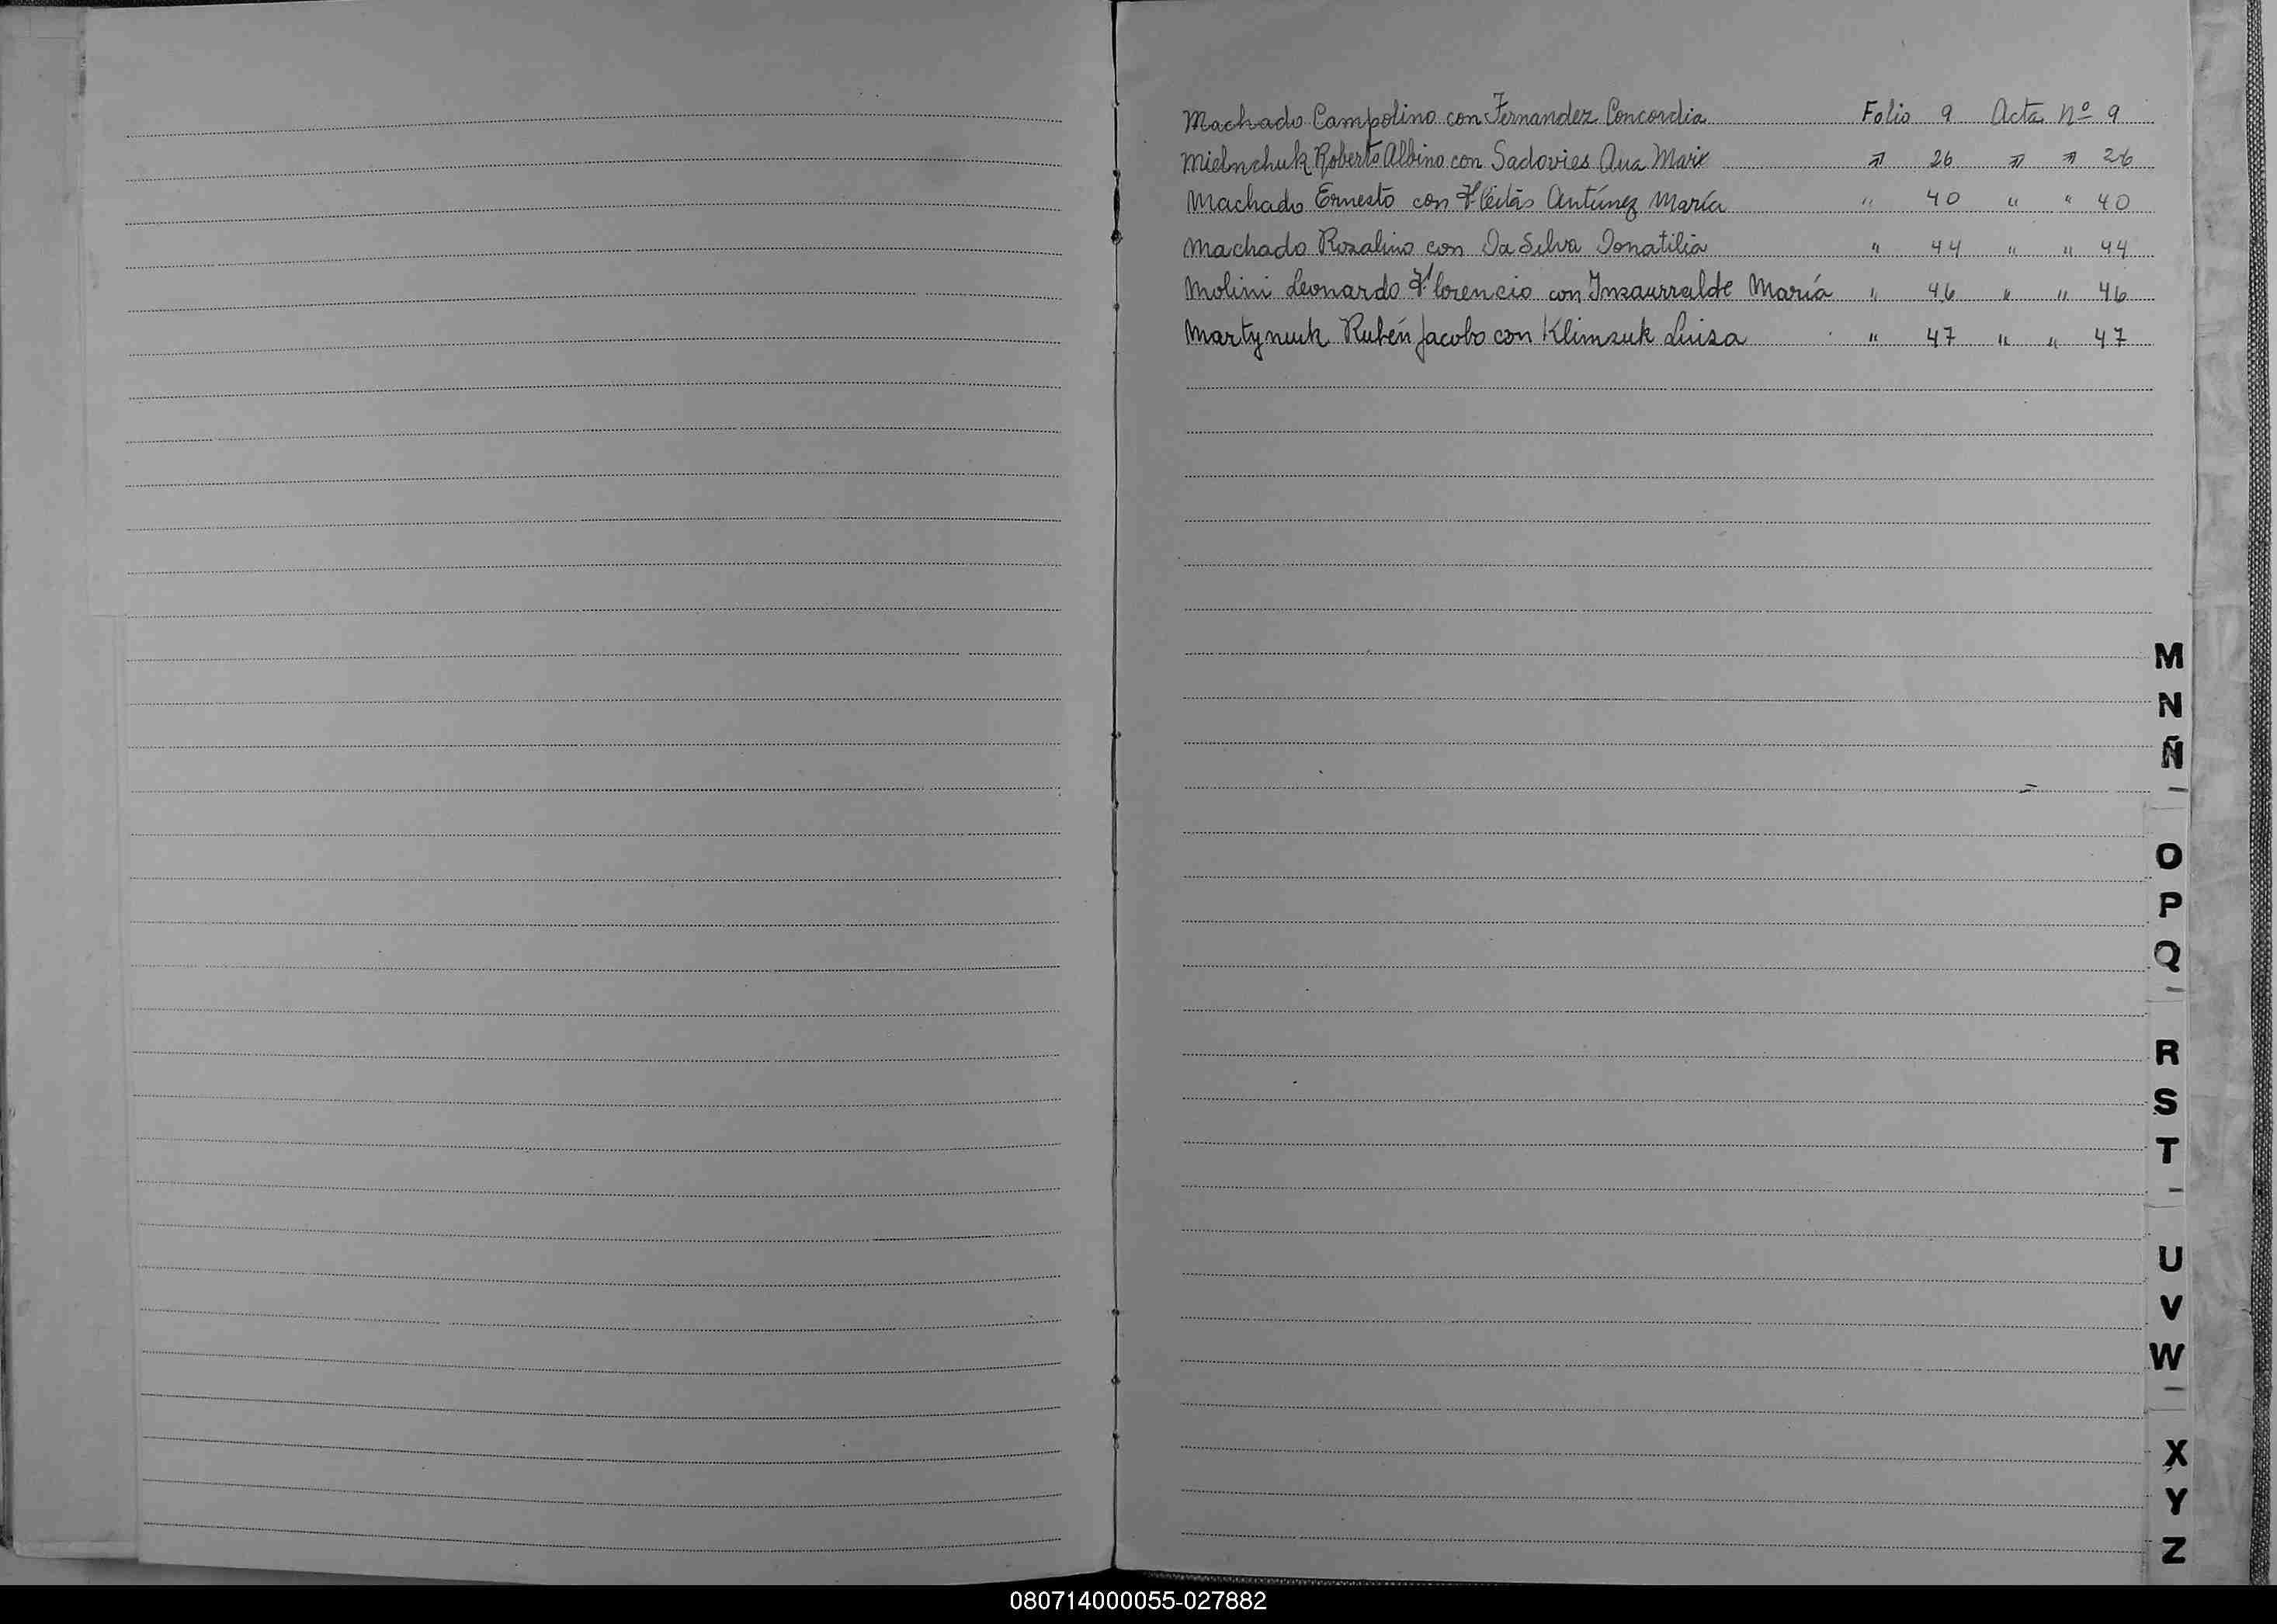 Machado Campolino con Fernandez Concordia Folio 9 Acta Nº 9
Mielnchuk Roberto Albino con Sadovies Ana Mari " 26 " " 26
Machado Ernesto con Fleitas Antúnez María " 40 " " 40
Machado Rozalino con Da Silva Donatilia " 44 " " 44
Molini Leonardo Florencio con Insaurralde María " 46 " " 46
Martynuk Rubén Jacobo con Klimzuk Luisa " 47 " " 47
M
N
Ñ
O
P
Q
R
S
T
U
V
W
X
Y
Z
080714000055-027882